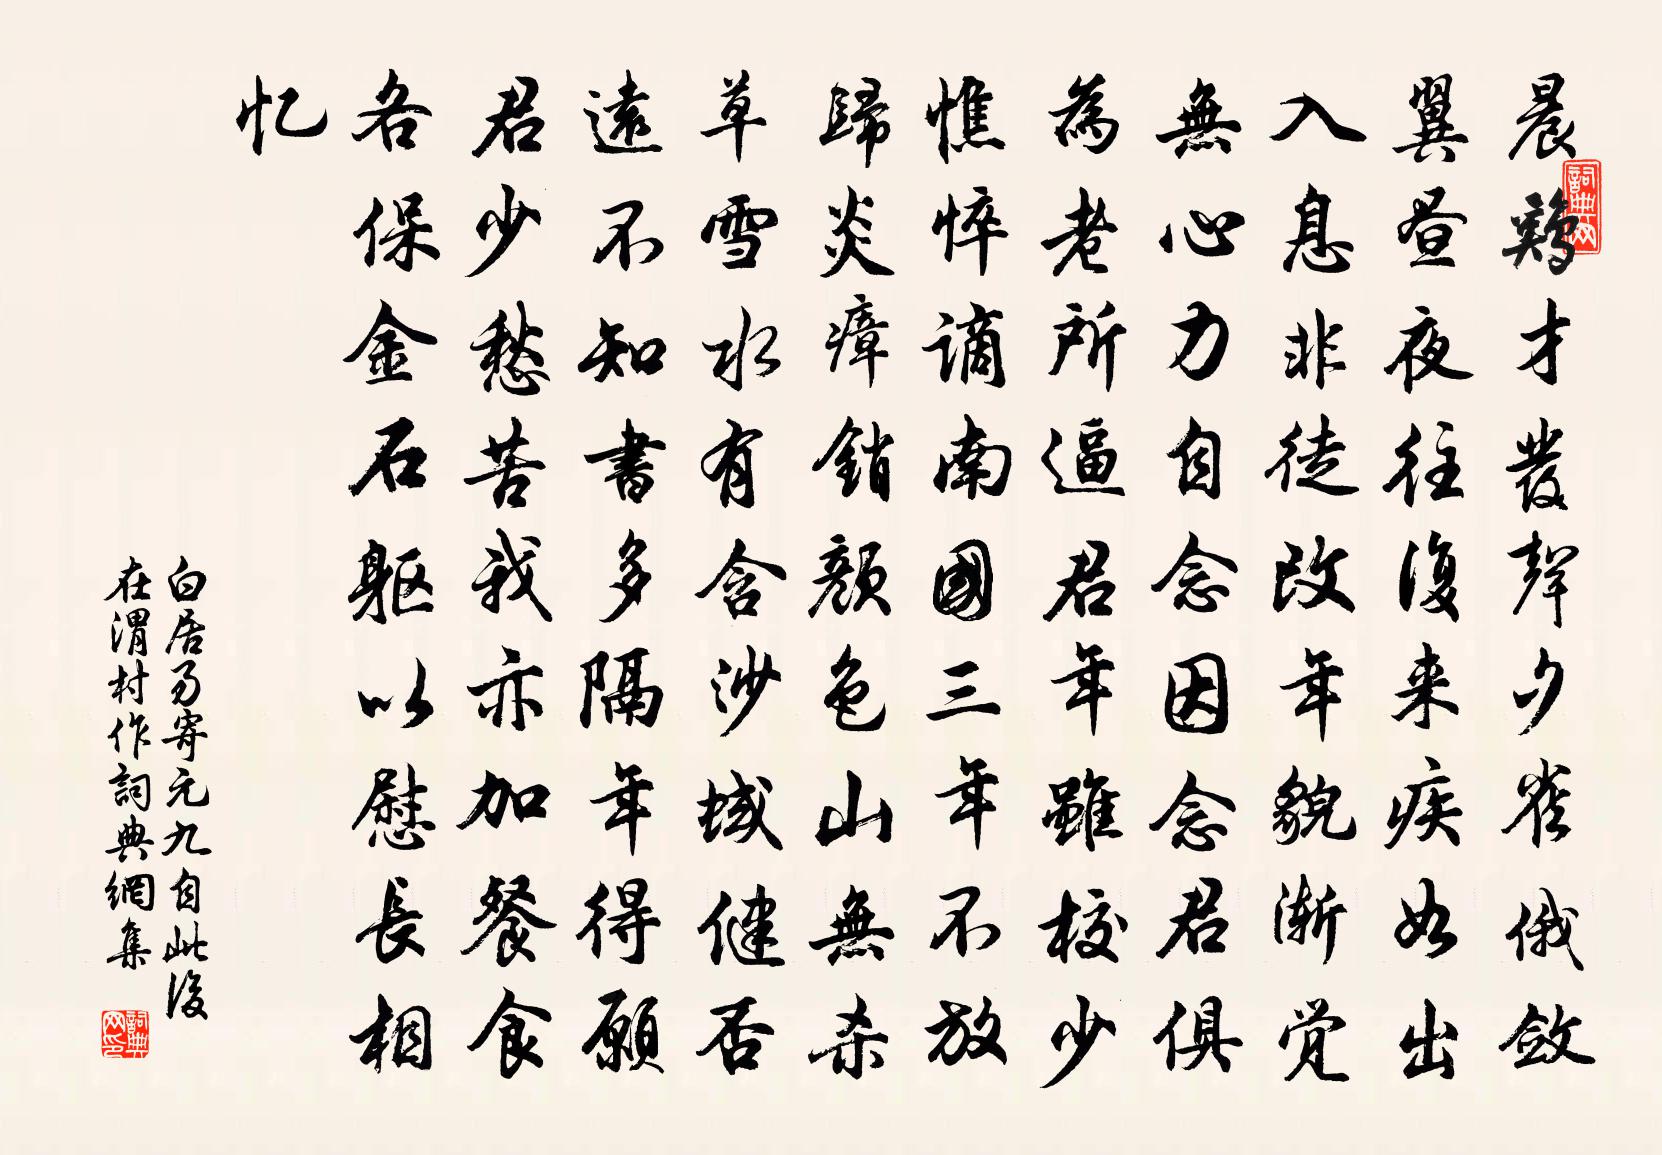 晨鷄才發聲夕雀俄斂
翼昼夜往復来疾如出
入息非徒改年貌渐觉
無心力自念因念君俱
為老所逼君年雖校少
憔悴謫南國三年不放
歸炎瘴銷顏色山無杀
草雪水有含沙域健否
遠不知書多隔年得願
君少愁苦我亦加餐食
各保金石躯以慰長相
忆
白居易寄元九自此後
在渭村作詞典網集
詞典网
詞典网印